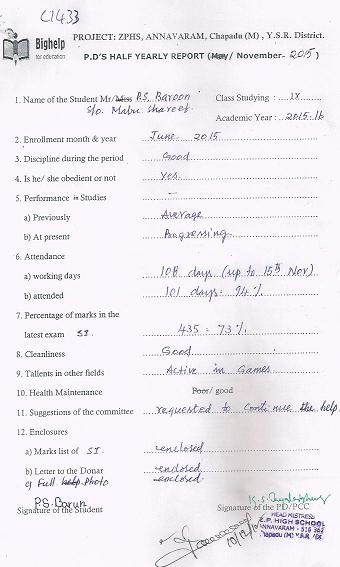 C1433
Bighelp
for education
PROJECT: ZPHS, ANNAVARAM, Chapadu (M) , Y.S.R. District.
P.D'S HALF YEARLY REPORT (May/ November- 2015 )
1. Name of the Student Mr/Miss P.S. Baroon Class Studying : IX
S/o. Mabu Shareef Academic Year : 2015-16
2. Enrollment month & year June 2015
3. Discipline during the period Good
4. Is he/ she obedient or not Yes
5. Performance in Studies –
a) Previously Average
b) At present Progressing
6. Attendance
a) working days 108 days (up to 15th Nov)
b) attended 101 days: 94%
7. Percentage of marks in the
latest exam SI. 435 : 73%
8. Cleanliness Good
9. Tallents in other fields Active in Games
10. Health Maintenance Poor/ good
11. Suggestions of the committee requested to continue the help.
12. Enclosures
a) Marks list of SI. enclosed
b) Letter to the Donar enclosed
c) Full help photo enclosed
P.S. Barun
Signature of the Student Signature of the PD/PCC
HEAD MISTRESS
Z.P. HIGH SCHOOL
ANNAVARAM - 516 362
Chapadu (M) Y.S.R.
10/12/15